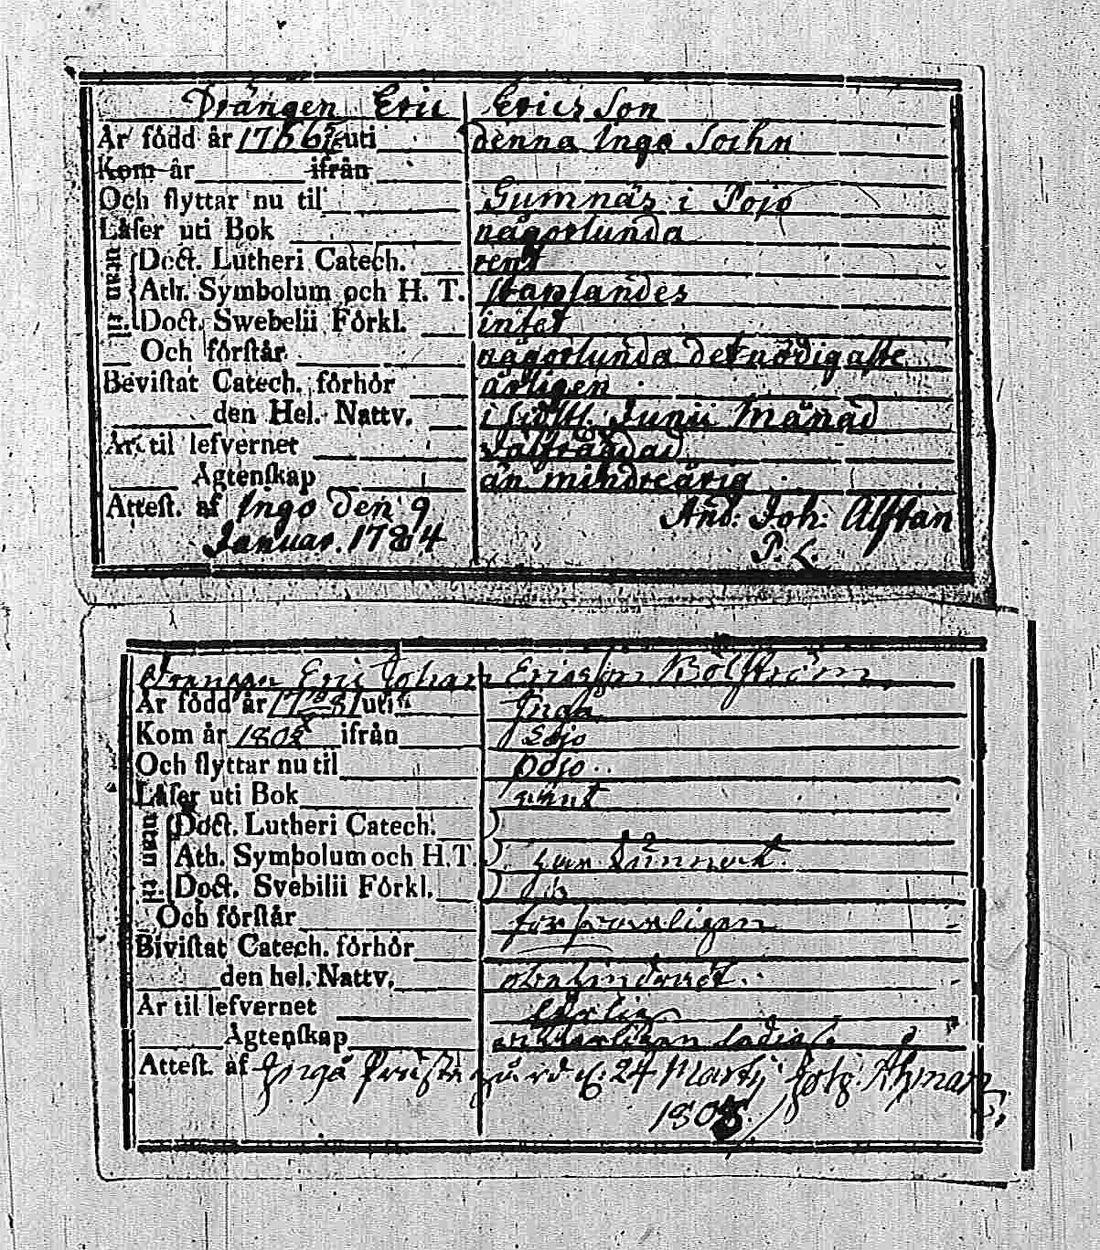 Drängen Eric Ericsson
År född år 1766 uti denna Ingo Sochn
Kom år ifrån
Och flyttar nu til Gumnäs i Pojo
Läser uti Bok någorlunda
utan til Doct. Lutheri Catech. rent
Ath. Symbolum och H. T. staplandes
Doct. Swebelii Förkl. intet
Och förstår någorlunda det nödigaste
Bevistat Catech. förhör årligen
den Hel. Nattv. i sidstl. Junii Månad
Är til lefvernet välfrägdad
Ägtenskap än mindreårig
Attest. af Ingo den 9 And: Joh: Alftan
Januar. 1784 P. L.
Drängen Eric Johan Ericsson Bolström
Är född år uti Inga
Kom år 180 ifrån Sojo
Och flyttar nu til Pojo
Läser uti Bok rent
utan til Doct. Lutheri Catech.
Ath. Symbolum och H.T.
Doct. Svebilii Förkl.
Och förstår försvarligen
Bivistat Catech. förhör
den hel. Nattv. obehindrat.
Är til lefvernet ärlig
Ägtenskap ledig
Attest. af Ingå Prästegård d. 24 Martij Åhman
180